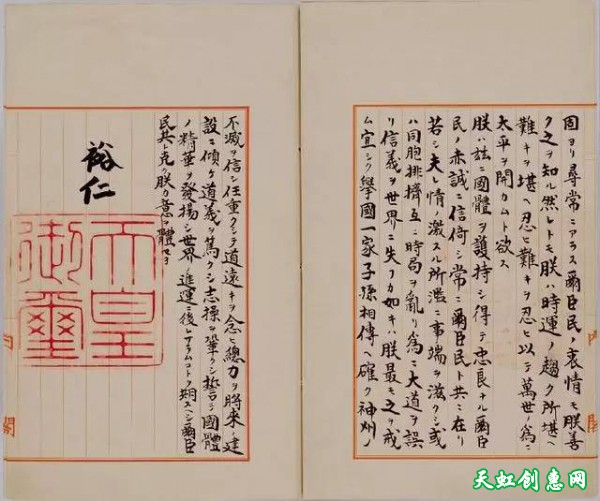 固ヨリ尋常ニアラス爾臣民ノ衷情モ朕善
ク之ヲ知ル然レトモ朕ハ時運ノ趨ク所堪ヘ
難キヲ堪ヘ忍ヒ難キヲ忍ヒ以テ萬世ノ爲ニ
太平ヲ開カムト欲ス
朕ハ茲ニ國體ヲ護持シ得テ忠良ナル爾臣
民ノ赤誠ニ信倚シ常ニ爾臣民ト共ニ在リ
若シ夫レ情ノ激スル所濫ニ事端ヲ滋クシ或
ハ同胞排擠互ニ時局ヲ亂リ爲ニ大道ヲ誤
リ信義ヲ世界ニ失フカ如キハ朕最モ之ヲ戒
ム宜シク擧國一家子孫相傳ヘ確ク神州ノ
不滅ヲ信シ任重クシテ道遠キヲ念ヒ總力ヲ將來ノ建
設ニ傾ケ道義ヲ篤クシ志操ヲ鞏クシ誓テ國體
ノ精華ヲ發揚シ世界ノ進運ニ後レサラムコトヲ期スヘシ爾臣
民其レ克ク朕カ意ヲ體セヨ
裕仁
天皇
御璽
閣
天虹创惠网